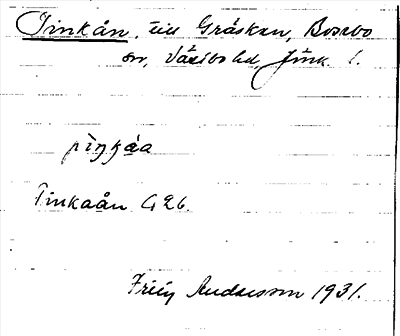 Pinkån, till Gråskan, Bosebo
sn, Västbo hd, Jönk. l.
pìŋkáa
Pinkaån G 26.
Andersson 1931.